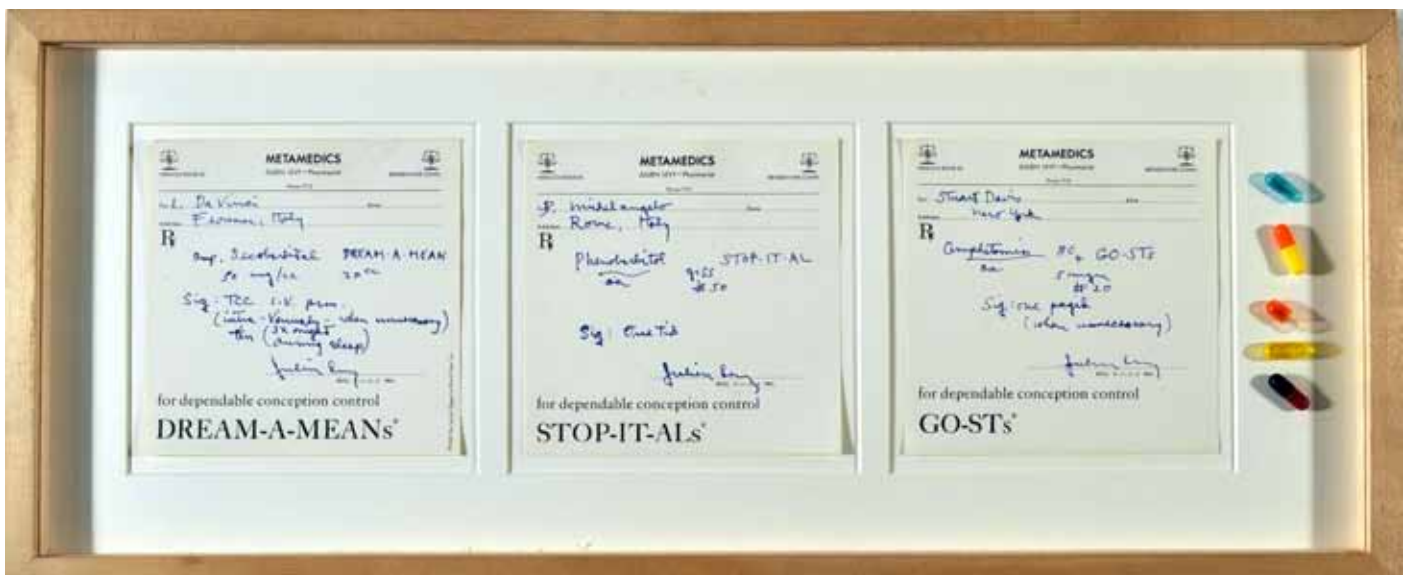 METAMEDICS
JULIEN LEVY—Pharmacist
L. Da Vinci
Florence, Italy
R
Amp. Secobarbital DREAM-A-MEAN
50 mg/cc 20cc
Sig: TCC I.V. prn.
(intra-Venously - when unnecessary)
then (3x night
during sleep)
Julien Levy
for dependable conception control
DREAM-A-MEANs
METAMEDICS
JULIEN LEVY—Pharmacist
Michelangelo
Rome, Italy
R
Phenobarbitol STOP-IT-AL
aa
#50
Sig: One Tid
Julien Levy
for dependable conception control
STOP-IT-ALs
METAMEDICS
JULIEN LEVY—Pharmacist
Stuart Davis
New York
R
GO-STs
aa 5 mgm
#20
Sig: one
(when unnecessary)
Julien Levy
for dependable conception control
GO-STs